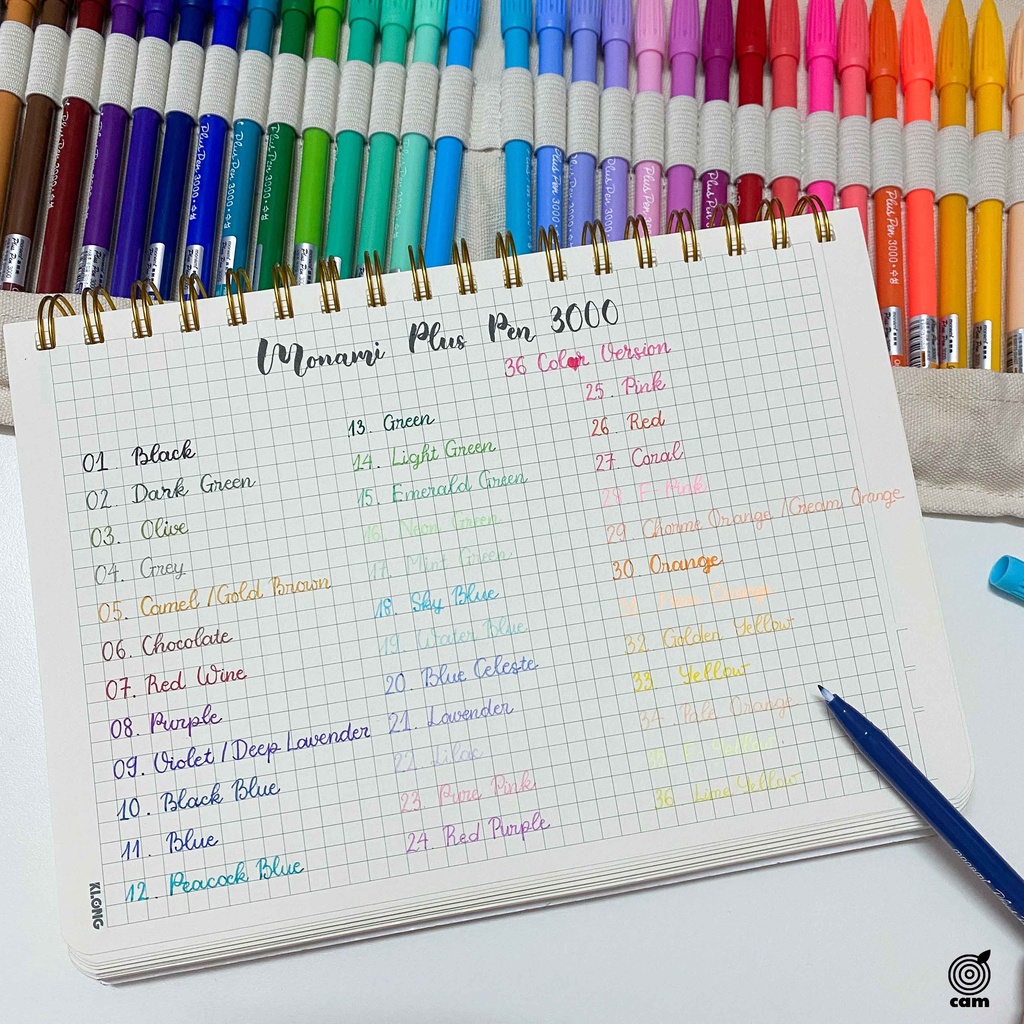 Monami Plus Pen 3000
36 Color Version
01 Black
02. Dark Green
03. Olive
04. Grey
05. Camel /Gold Brown
06. Chocolate
07. Red Wine
08. Purple
09. Violet / Deep Lavender
10. Black Blue
11. Blue
12. Peacock Blue
13. Green
14. Light Green
15. Emerald Green
16. Neon Green
17. Mint Green
18. Sky Blue
19. Water Blue
20. Blue Celeste
21. Lavender
22. Lilac
23. Pure Pink
24. Red Purple
25. Pink
26. Red
27. Coral
28. F. Pink
29. Chorme Orange /Cream Orange
30 Orange
Orange
32 Golden Yellow
33 Yellow
34. Pale Orange
35. F. Yellow
36. Lime Yellow
KLONG
Plus Pen 3000 · 수성
cam